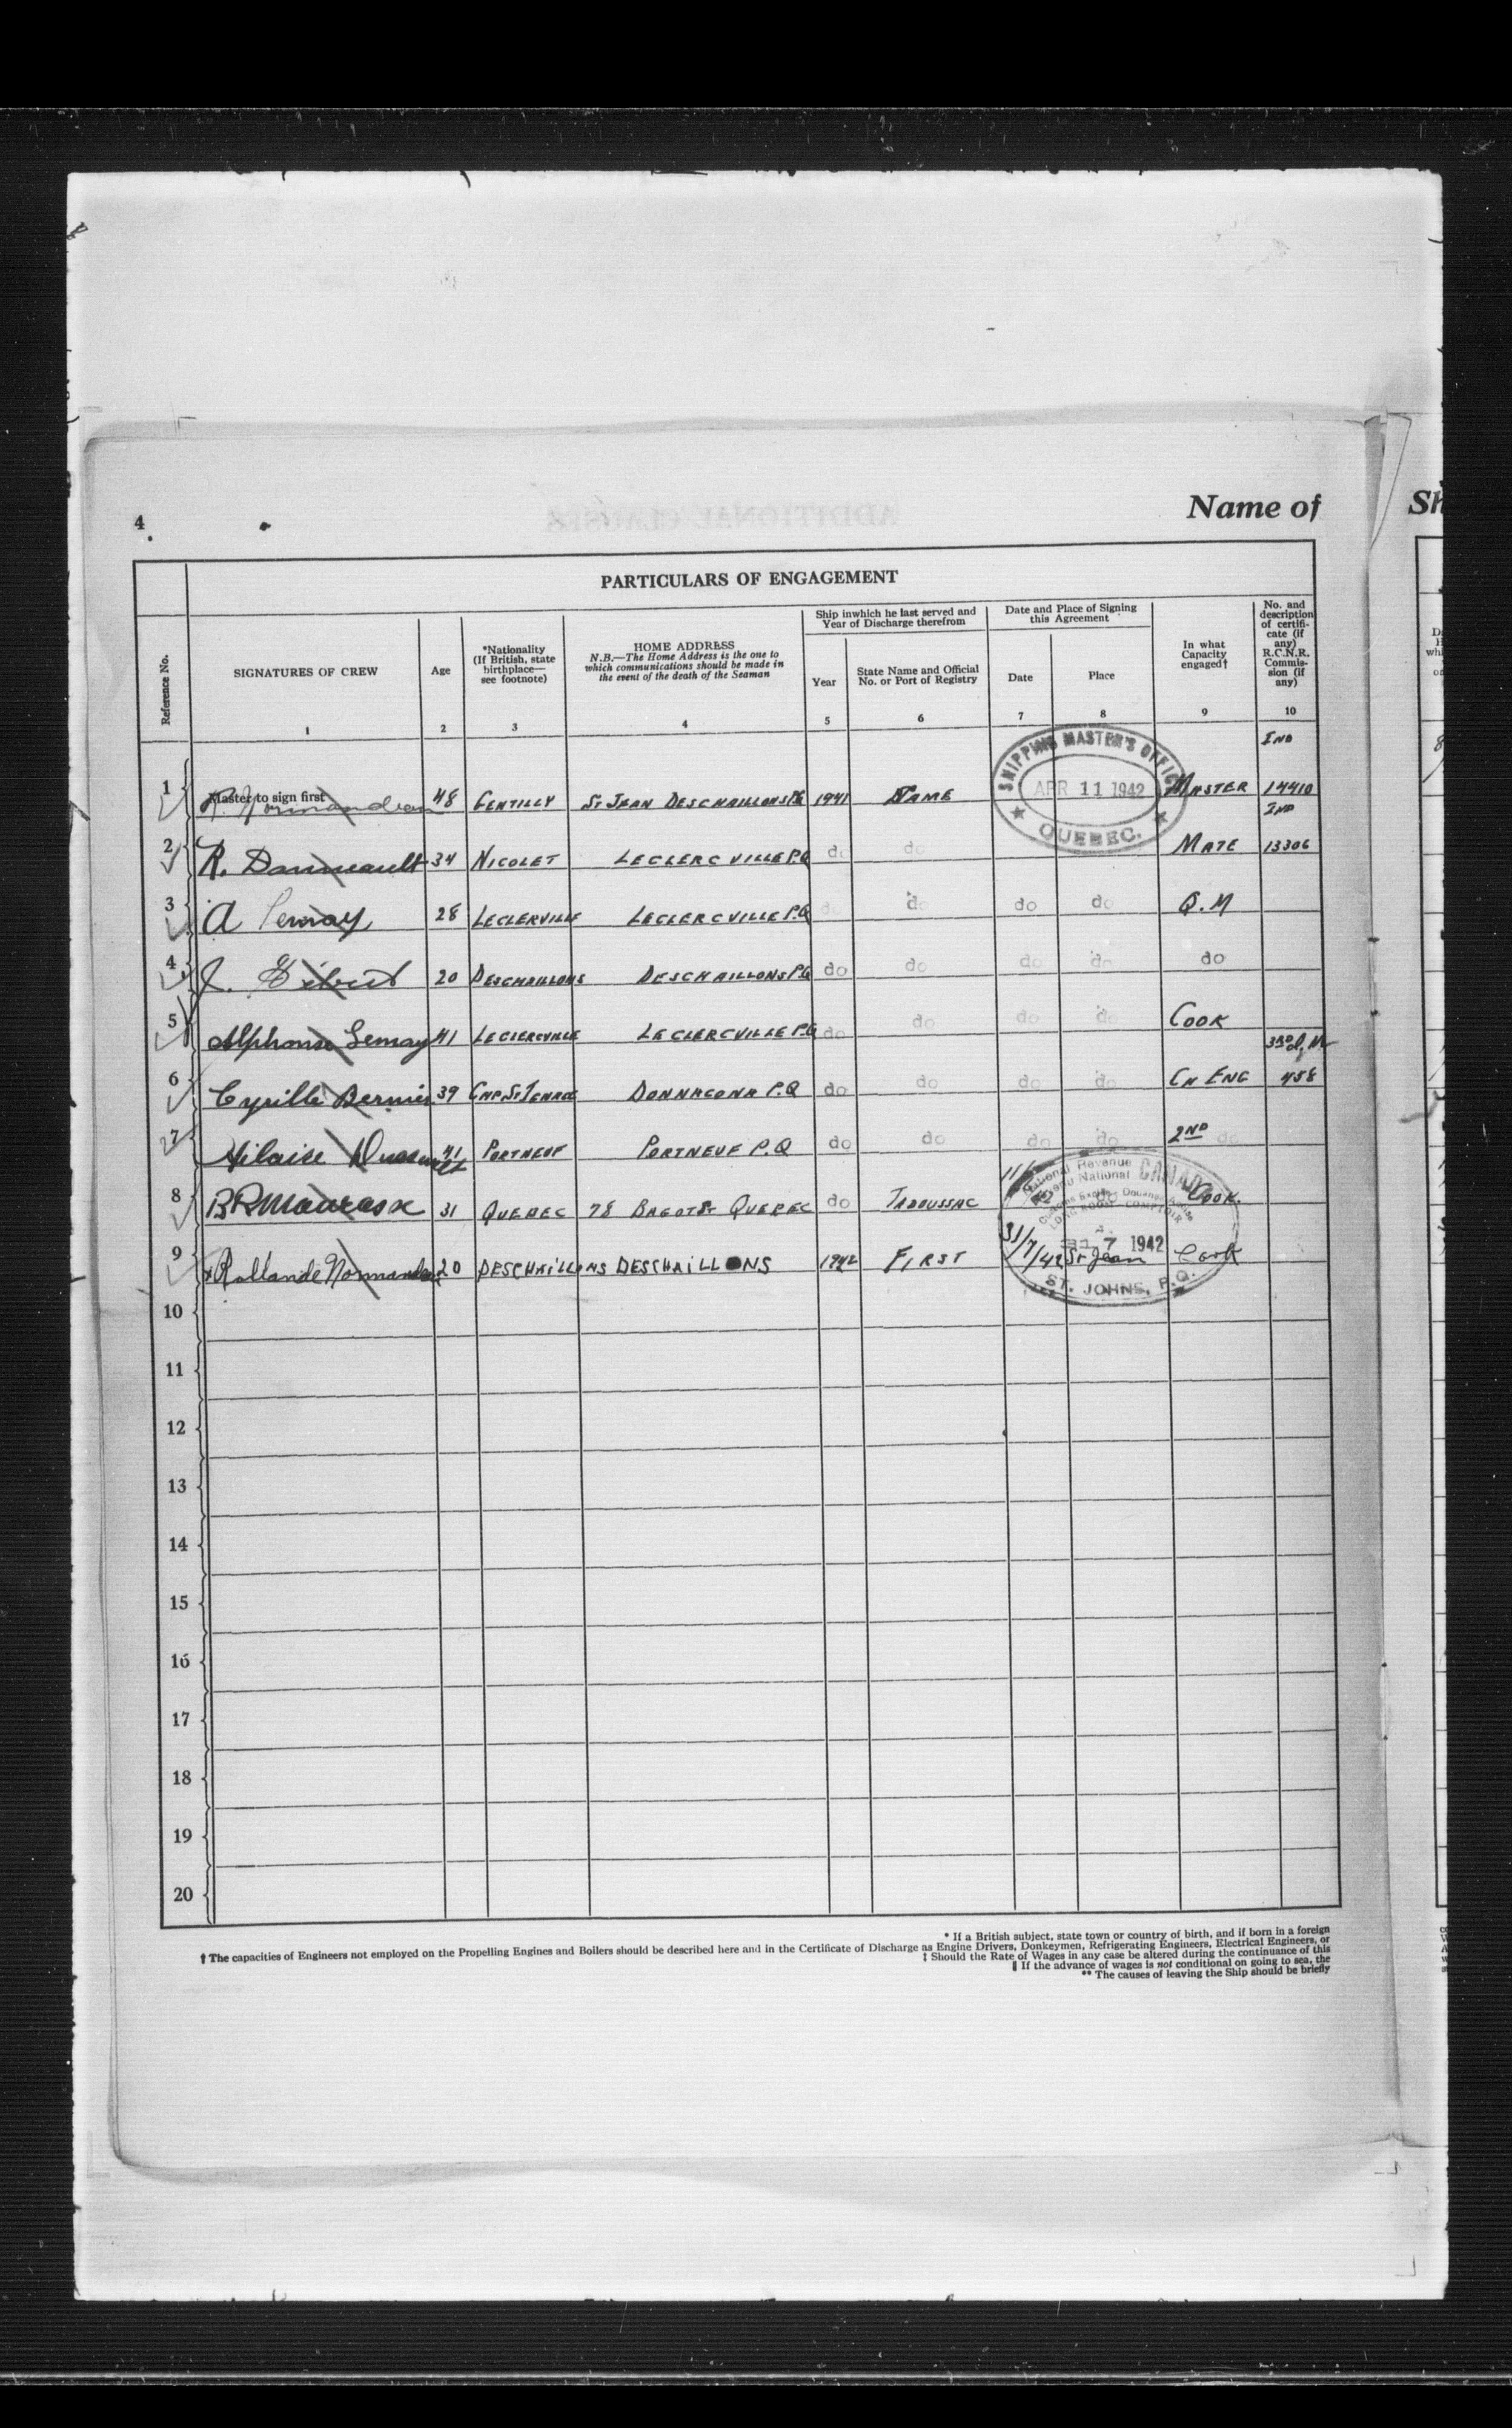 4
Name of
Sh
PARTICULARS OF ENGAGEMENT
Reference No.
SIGNATURES OF CREW
Age
*Nationality
(If British, state
birthplace—
see footnote)
HOME ADDRESS
N.B.—The Home Address is the one to
which communications should be made in
the event of the death of the Seaman
Ship in which he last served and
Year of Discharge therefrom
Year
State Name and Official
No. or Port of Registry
Date and Place of Signing
this Agreement
Date
Place
In what
Capacity
engaged†
No. and
description
of certifi-
cate (if
any)
R.C.N.R.
Commis-
sion (if
any)
1 2 3 4 5 6 7 8 9 10
SHIPPING MASTER'S OFFICE
APR 11 1942
QUEBEC.
IND
1 Master to sign first R. Normandeau 48 GENTILLY ST JEAN DESCHAILLONS PQ 1941 SAME MASTER 14410
IND
2 R. Daneault 34 NICOLET LECLERCVILLE P.Q do do MATE 13306
3 A Lemay 28 LECLERVILLE LECLERCVILLE P.Q do do do do Q.M
4 J. 20 DESCHAILLONS DESCHAILLONS P.Q do do do do do
5 Alphonse Lemay 41 LECLERCVILLE LECLERCVILLE P.Q do do do do COOK
6 Cyrille Bernier 39 DONNACONA P.Q do do do do CH ENG 458
7 Hilaire 41 PORTNEUF PORTNEUF P.Q do do do do 2ND do
8 31 QUEBEC 78 BAGOT ST QUEBEC do TADOUSSAC COOK.
9 Rollande Normandeau 20 DESCHAILLONS DESCHAILLONS 1942 FIRST 31/7/42 St Jean Cook
National Revenue
CANADA
7 1942
ST. JOHNS, P.Q.
10
11
12
13
14
15
16
17
18
19
20
* If a British subject, state town or country of birth, and if born in a foreign
† The capacities of Engineers not employed on the Propelling Engines and Boilers should be described here and in the Certificate of Discharge as Engine Drivers, Donkeymen, Refrigerating Engineers, Electrical Engineers, or
‡ Should the Rate of Wages in any case be altered during the continuance of this
‖ If the advance of wages is not conditional on going to sea, the
** The causes of leaving the Ship should be briefly